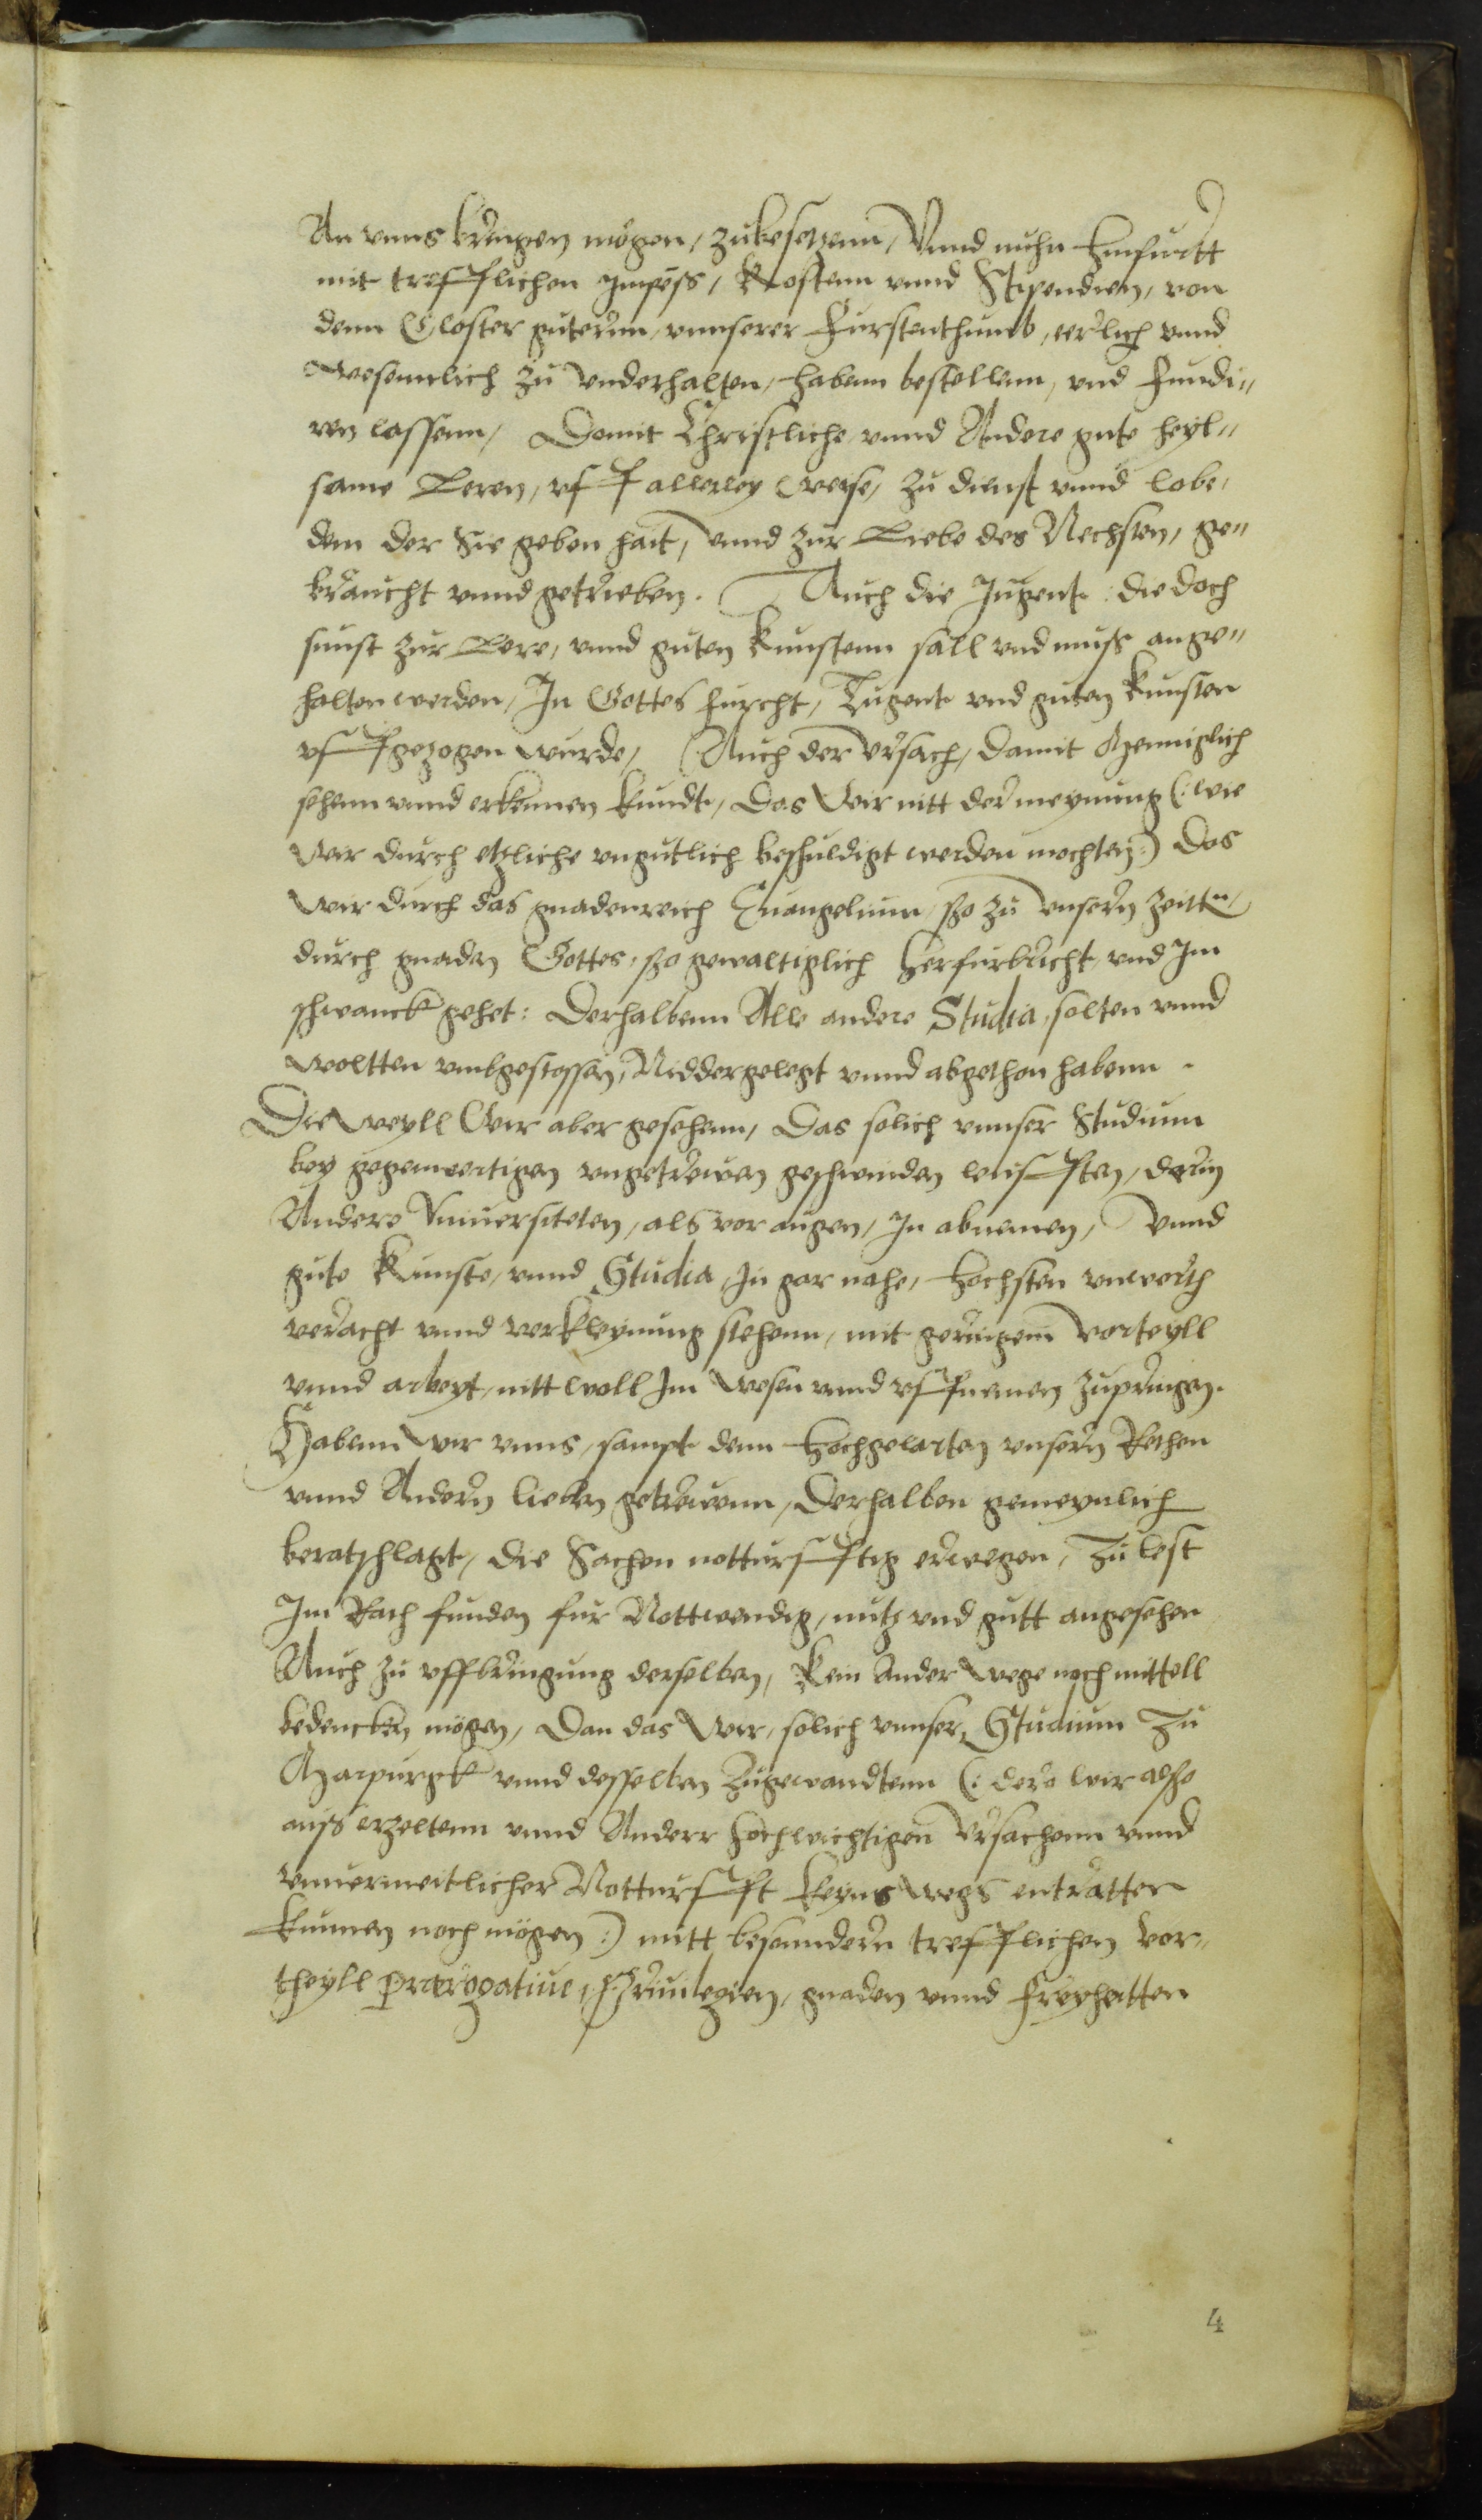 An vnns bringen mögen, zubesetzenn, Vnnd nuhn hinfurtt
mit trefflichen Impess, Kostenn vnnd Stipendien, von
denn Closter guterinn, vnnserer Furstenthumb, eerlich vnnd
wesenntlich zu vnderhalten, habenn bestellenn, vnd fundi„
ren lassenn, Domit Christliche vnnd Andere gute heyl„
same Leren, vff allerley weise, zu dienst vnnd lobe,
dem der Sie geben hait, vnnd zur Liebe des Nechsten, ge„
braucht vnnd getrieben. Auch die Jugent: die doch
sunst zur Lere, vnnd guten Kunstenn sall vnd muß ange„
halten werden, In Gottes furcht, Tugent vnd guten kunsten
vffgezogen wurde, Auch der vrsach, damit Menniglich
sehenn vnnd erkennen kundt, Das Wir nitt der meynung (: wie
Wir durch etzliche vngutlich beschuldigt werden mochten:) Das
Wir durch das gnadenreich Euangelium, szo zu vnsern zeittn,
durch gnaden Gottes, szo gewaltiglich herfurbricht, vnd Im
schwanck gehet: Derhalbenn Alle andere Studia, solten vnnd
woltten vmbgestossen, Niddergelegt vnnd abgethon habenn.
Die weyll Wir aber gesehenn, Das solich vnnser Studium
bey gegenwertigen vngetrewen geschwinden leufften, darin
Andere Vniuersiteten, als vor augen, In abnemen, Vnnd
gute Kunste, vnnd Studia, In gar nahe, hochsten vnwerth
veracht vnnd verkleynung stehenn, mit geringem vorteyll
vnnd arbeyt, nitt woll Im Wesen vnnd vffnemen zupringen.
Habenn wir vnns, sampt denn hochgelarten vnsern Rethen
vnnd Andern lieben getrewenn, Derhalben gemeynlich
beratschlagt, die Sachen notturfftig erwegen, Zu lest
Im Rath funden fur Nottwendig, nutz vnd gutt angesehen
Auch zu vffbringung derselben, Kein Ander Wege noch mittell
bedencken mögen, Dan das Wir, solich vnnser, Studium Zu
Marpurgk vnnd desselben Zugewandtenn (: dere wir also
auß erzeltenn vnnd Anderr hochwichtigen Vrsachenn vnnd
vnuermeitlicher Notturfft keyns Wegs entratten
kunnen noch mögen:) mitt besunndern trefflichen Vor„
theyll Prærogatiue, Priuilegien, gnaden vnnd freyheitten
4